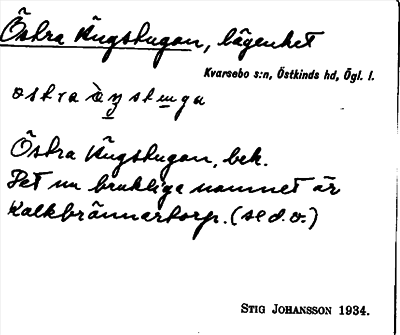 Östra Ängstugan, lägenhet
Kvarsebo s:n, Östkinds hd, Ögl. l.
östra
Östra Ängstugan, bek.
Det nu brukliga namnet är
Kalkbrännartorp. (se d. o.)
STIG JOHANSSON 1934.